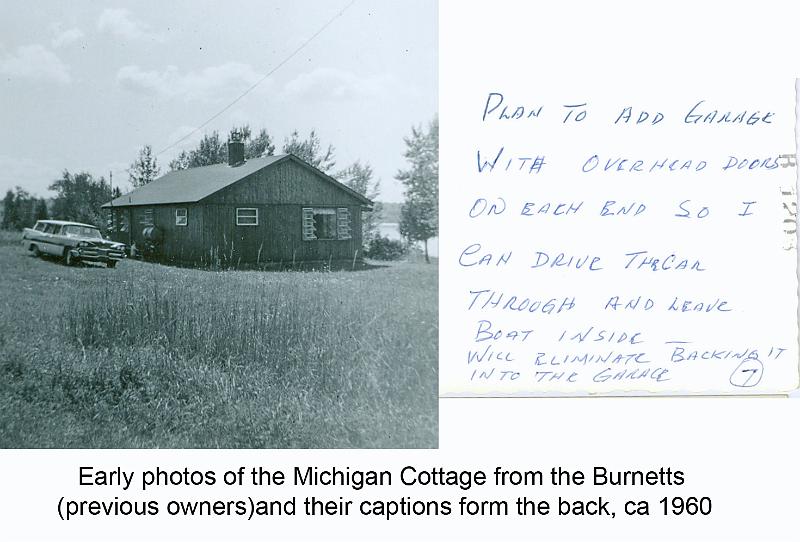 PLAN TO ADD GARAGE
WITH OVERHEAD DOORS
ON EACH END SO I
CAN DRIVE THE CAR
THROUGH AND LEAVE
BOAT INSIDE —
WILL ELIMINATE BACKING IT
INTO THE GARAGE 7
Early photos of the Michigan Cottage from the Burnetts
(previous owners)and their captions form the back, ca 1960